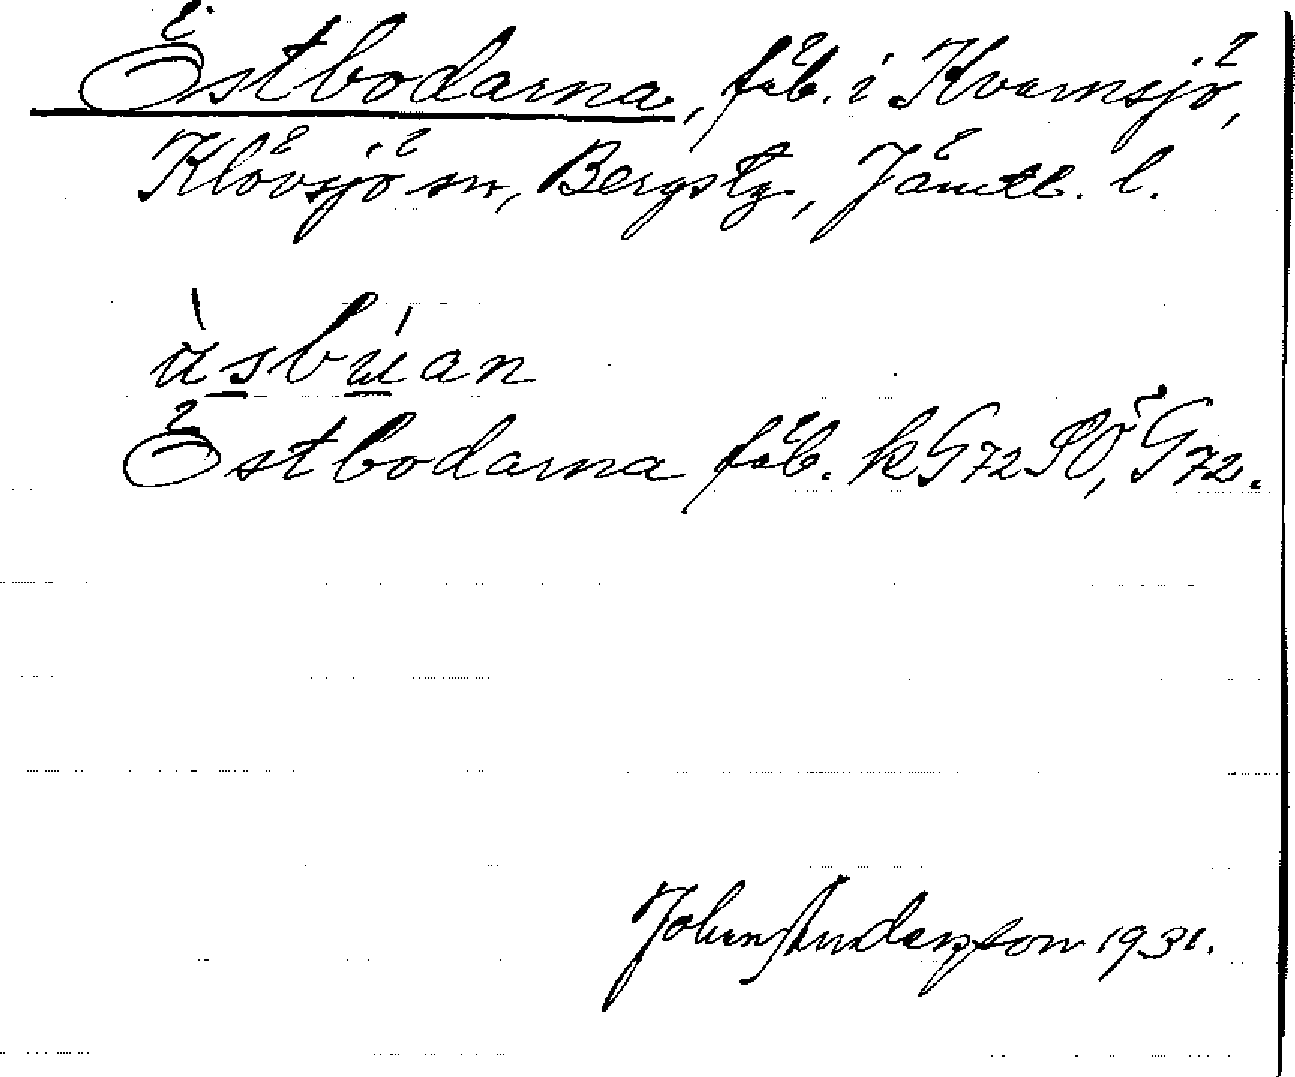 Östbodarna, fäb. i Kvarnsjö,
Klövsjö sn, Bergs tg, Jämtl. l.
ùsbúan
Östbodarna fäb. k G72 SO, G72.
Johan Anderzson 1931.